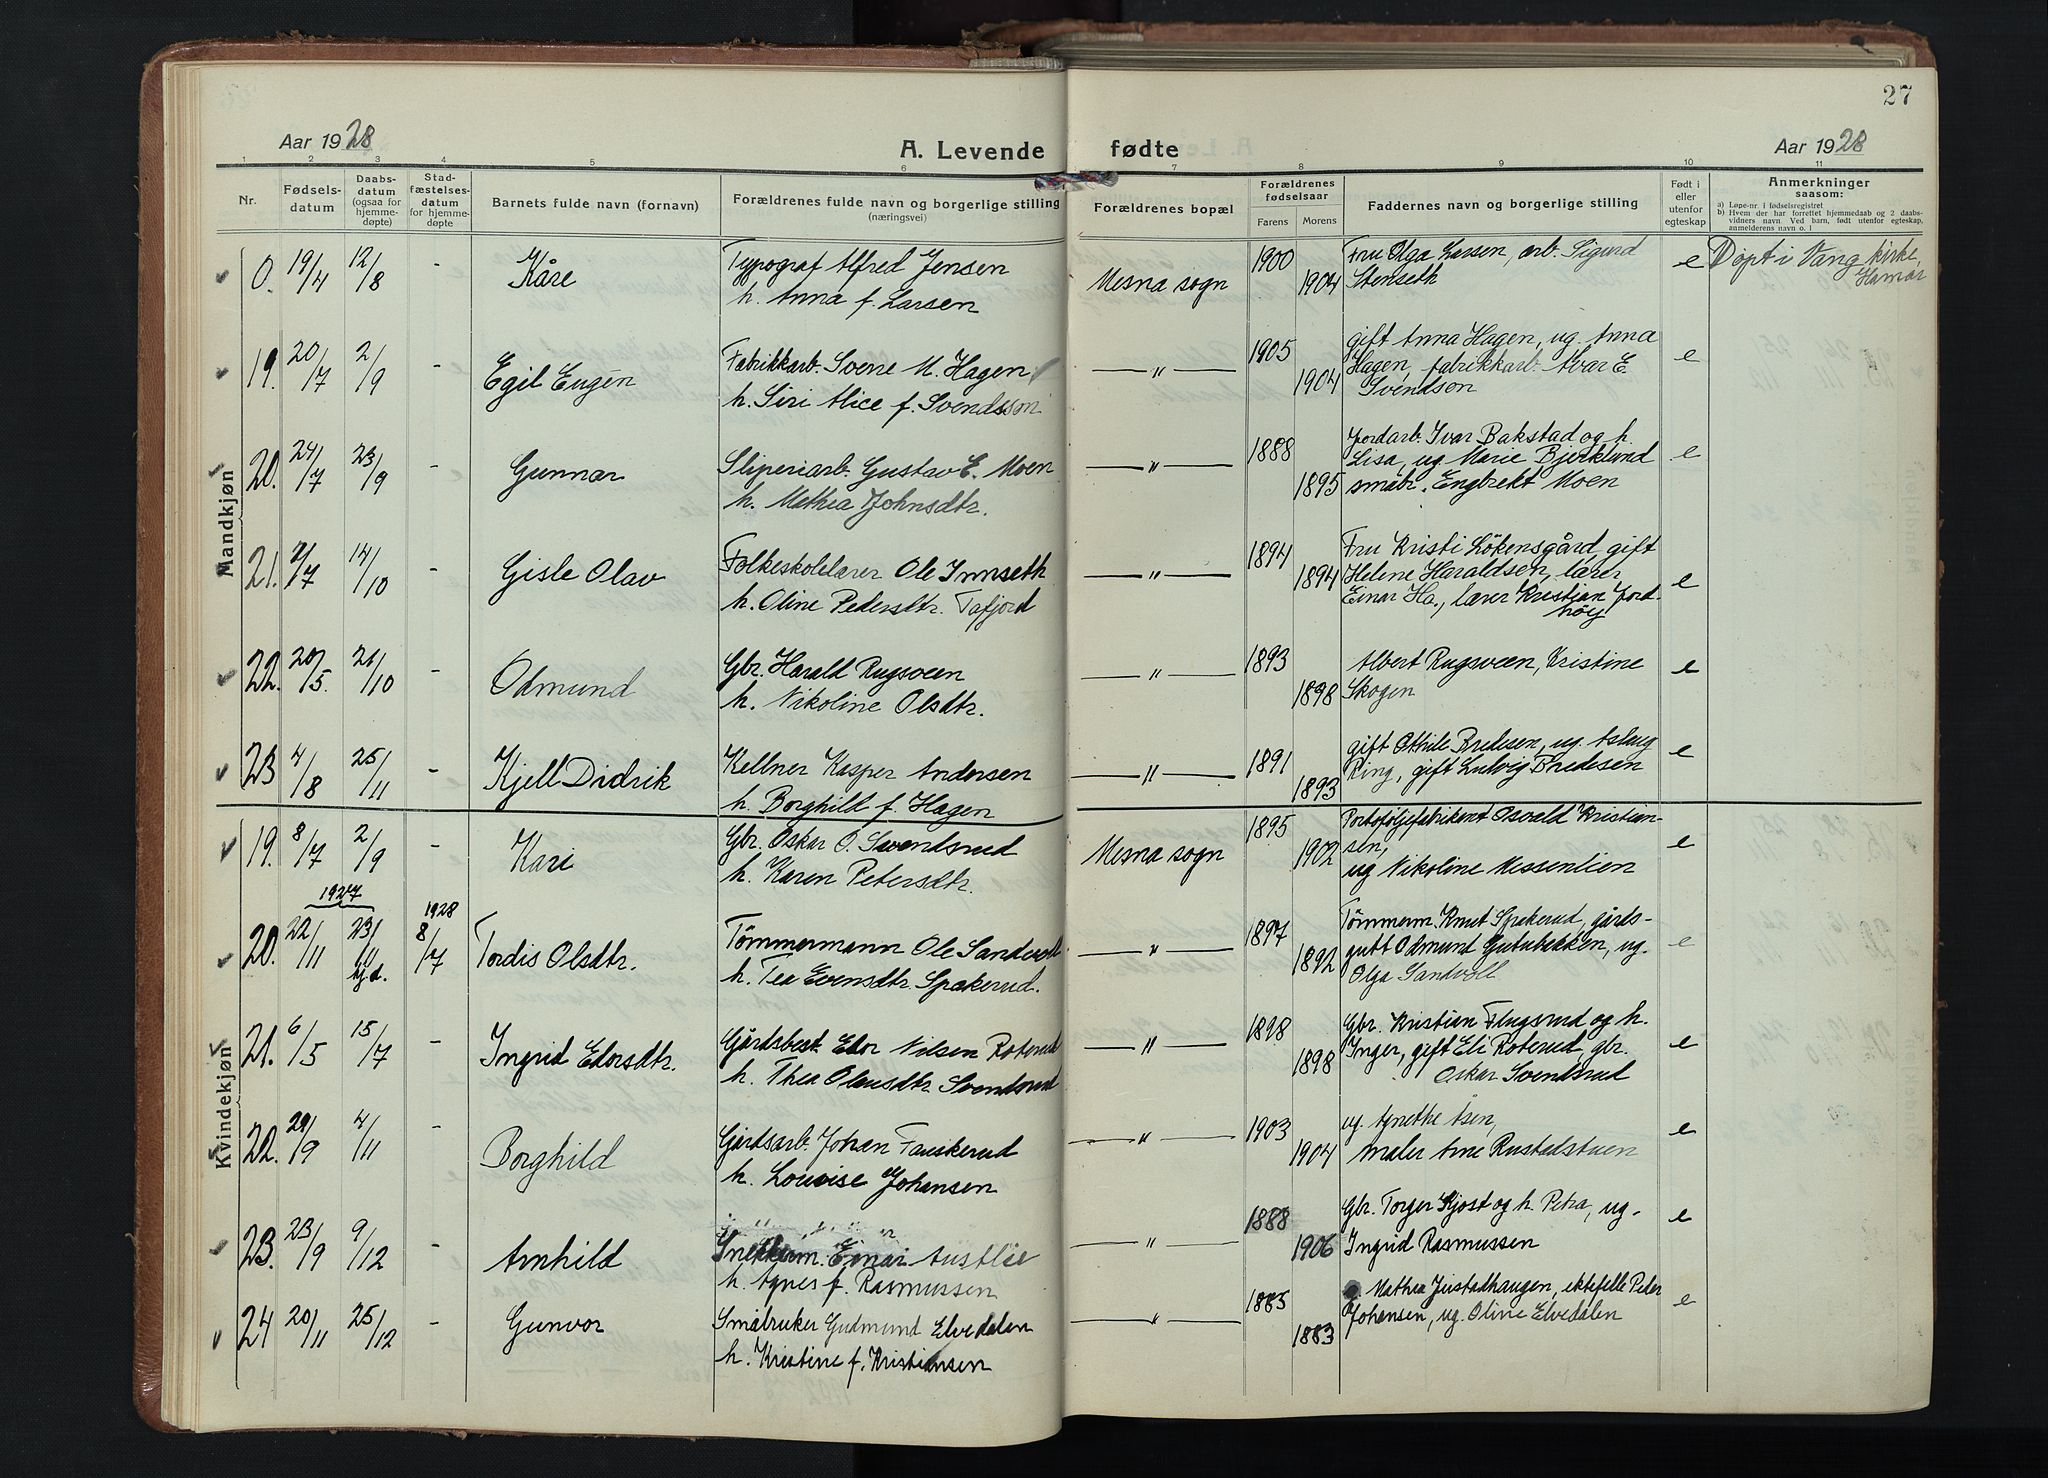 27
Aar 1928
A. Levende fødte
Aar 1928
1 2 3 4 5 6 7 8 9 10 11
Nr.
Fødsels-
datum
Daabs-
datum
(ogsaa for
hjemme-
døpte)
Stad-
fæstelses-
datum
for hjemme-
døpte
Barnets fulde navn (fornavn)
Forældrenes fulde navn og borgerlige stilling
(næringsvei)
Forældrenes bopæl
Forældrenes
fødselsaar
Farens
Morens
Faddernes navn og borgerlige stilling
Født i
eller
utenfor
egteskap
Anmerkninger
saasom:
a) Løpe-nr. i fødselsregistret
b) Hvem der har forrettet hjemmedaab og 2 daabs-
vidners navn. Ved barn, født utenfor egteskap,
anmelderens navn o. l.
Mandkjøn
0. 19/4 12/8 - Kåre
Typograf Alfred Jensen
h. Anna f. Larsen
Mesna sogn
1900
1904
Fru Olga Larsen, arb. Sigurd
Stenseth
e
Døpt i Vang kirke,
Hamar
19. 20/7 2/9 - Egil Eugén
Fabrikkarb. Svene M. Hagen
h. Siri Alice f. Svendsson
— " —
1905
1904
gift Anna Hagen, ug. Anna
Hagen, fabrikkarb. Avar E.
Svendsen
e
20. 24/7 23/9 - Gunnar
Sliperiarb. Gustav E. Moen
h. Mathea Johnsdtr.
— " —
1888
1895
Jordarb. Ivar Bakstad og h.
Lisa, ug Marie Bjerklund
småbr. Engbrekt Moen
e
21. /7 14/10 - Gisle Olav
Folkeskolelærer Ole Innseth
h. Oline Pedersdtr. Tafjord
— " —
1894
1894
Fru Kristi Lökensgård, gift
Helene Haraldsen, lærer
Einar Ha., lærer Kristian Jord-
höy
e
22. 20/5. 21/10 - Odmund
Gbr. Harald Rugsveen
h. Nikoline Olsdtr.
— " —
1893
1898
Albert Rugsveen, Kristine
Skogen
e
23 4/8 25/11 - Kjell Didrik
Kellner Kasper Andersen
h. Borghild f. Hagen
— " —
1891
1893
gift Othile Bredesen, ug. Aslaug
Ring, gift Ludvig Bredesen
e
Kvindekjøn
19. 8/7 2/9 - Kari
Gbr. Oskar O. Svendsrud
h. Karen Petersdtr.
Mesna sogn
1895
1902
Portoføljefabrikent Osvald Kristian-
sen,
ug Nikoline Messenlien
e
1927
1928
20. 22/11 23/11 hjd. 8/7 Tordis Olsdtr.
Tömmermann Ole Sandvoll
h. Tea Evensdtr. Spakerud.
— " —
1897
1892
Tömmerm. Knut Spakerud, gårds-
gutt Odmund Gutubakken, ug.
Olga Sandvoll
e
21. 6/5 15/7 - Ingrid Edorsdtr.
Gårdsbest. Edor Nilsen Roterud
h. Thea Olausdtr Svendsrud
— " —
1898
1898
Gbr. Kristian Flugsrud og h.
Inger, gift Eli Roterud, gbr.
Oskar Svendsrud
e
22. 29/9 4/11 - Borghild
Gårdsarb. Johan Fauskerud
h. Lovise Johansen
— " —
1903
1904
ug. Agnethe Åsen,
maler Arne Rustadstuen
e
23. 23/9 9/12 - Arnhild
Snekkerm. Einar Austlie
h. Agnes f. Rasmussen
— " —
1888
1906
Gbr. Torger Kjost og h. Petra, ug.
Ingrid Rasmussen
e
24 20/11 25/12 - Gunvor
Småbruker Gudmund Elvedalen
h. Kristine f. Kristiansen
— " —
1885
1883
Mathea Justadhaugen, ektefelle Peder
Johansen, ug. Oline Elvedalen
e